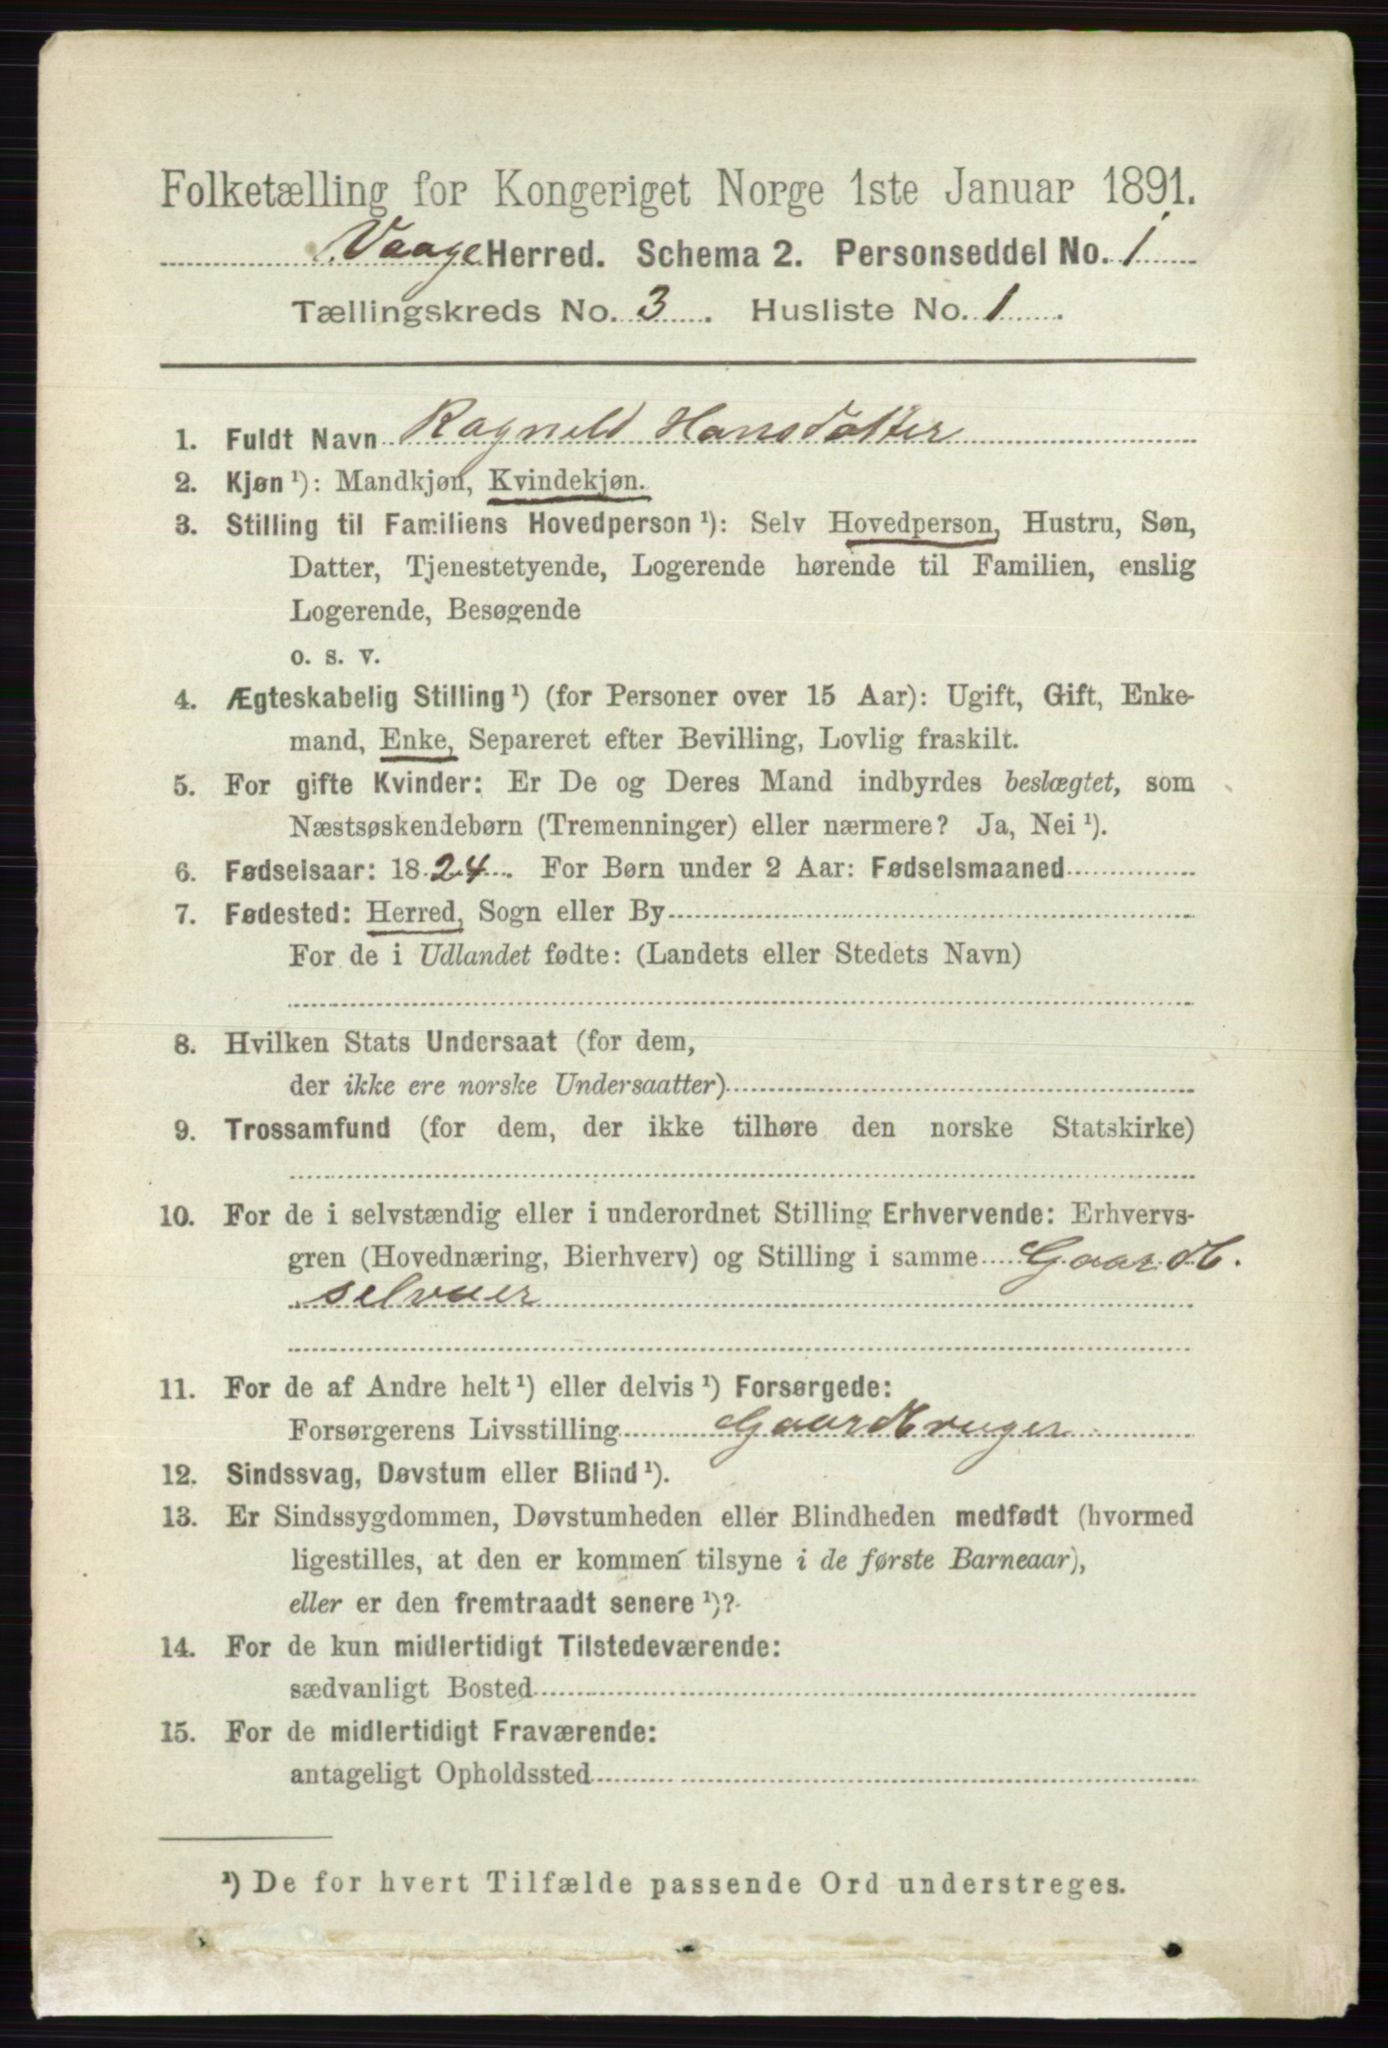 Folketælling for Kongeriget Norge 1ste Januar 1891.
Vaage Herred. Schema 2. Personseddel No. 1
Tællingskreds No. 3. Husliste No. 1.
1. Fuldt Navn Ragnild Hansdatter
2. Kjøn ¹): Mandkjøn, Kvindekjøn.
3. Stilling til Familiens Hovedperson ¹): Selv Hovedperson, Hustru, Søn,
Datter, Tjenestetyende, Logerende hørende til Familien, enslig
Logerende, Besøgende
o. s. v.
4. Ægteskabelig Stilling ¹) (for Personer over 15 Aar): Ugift, Gift, Enke-
mand, Enke, Separeret efter Bevilling, Lovlig fraskilt.
5. For gifte Kvinder: Er De og Deres Mand indbyrdes beslægtet, som
Næstsøskendebørn (Tremenninger) eller nærmere? Ja, Nei ¹).
6. Fødselsaar: 1824. For Børn under 2 Aar: Fødselsmaaned
7. Fødested: Herred, Sogn eller By
For de i Udlandet fødte: (Landets eller Stedets Navn)
8. Hvilken Stats Undersaat (for dem,
der ikke ere norske Undersaatter)
9. Trossamfund (for dem, der ikke tilhøre den norske Statskirke)
10. For de i selvstændig eller i underordnet Stilling Erhvervende: Erhvervs-
gren (Hovednæring, Bierhverv) og Stilling i samme Gaardb.
selvuer
11. For de af Andre helt ¹) eller delvis ¹) Forsørgede:
Forsørgerens Livsstilling Gaardbruger
12. Sindssvag, Døvstum eller Blind ¹).
13. Er Sindssygdommen, Døvstumheden eller Blindheden medfødt (hvormed
ligestilles, at den er kommen tilsyne i de første Barneaar),
eller er den fremtraadt senere ¹)?
14. For de kun midlertidigt Tilstedeværende:
sædvanligt Bosted
15. For de midlertidigt Fraværende:
antageligt Opholdssted
¹) De for hvert Tilfælde passende Ord understreges.